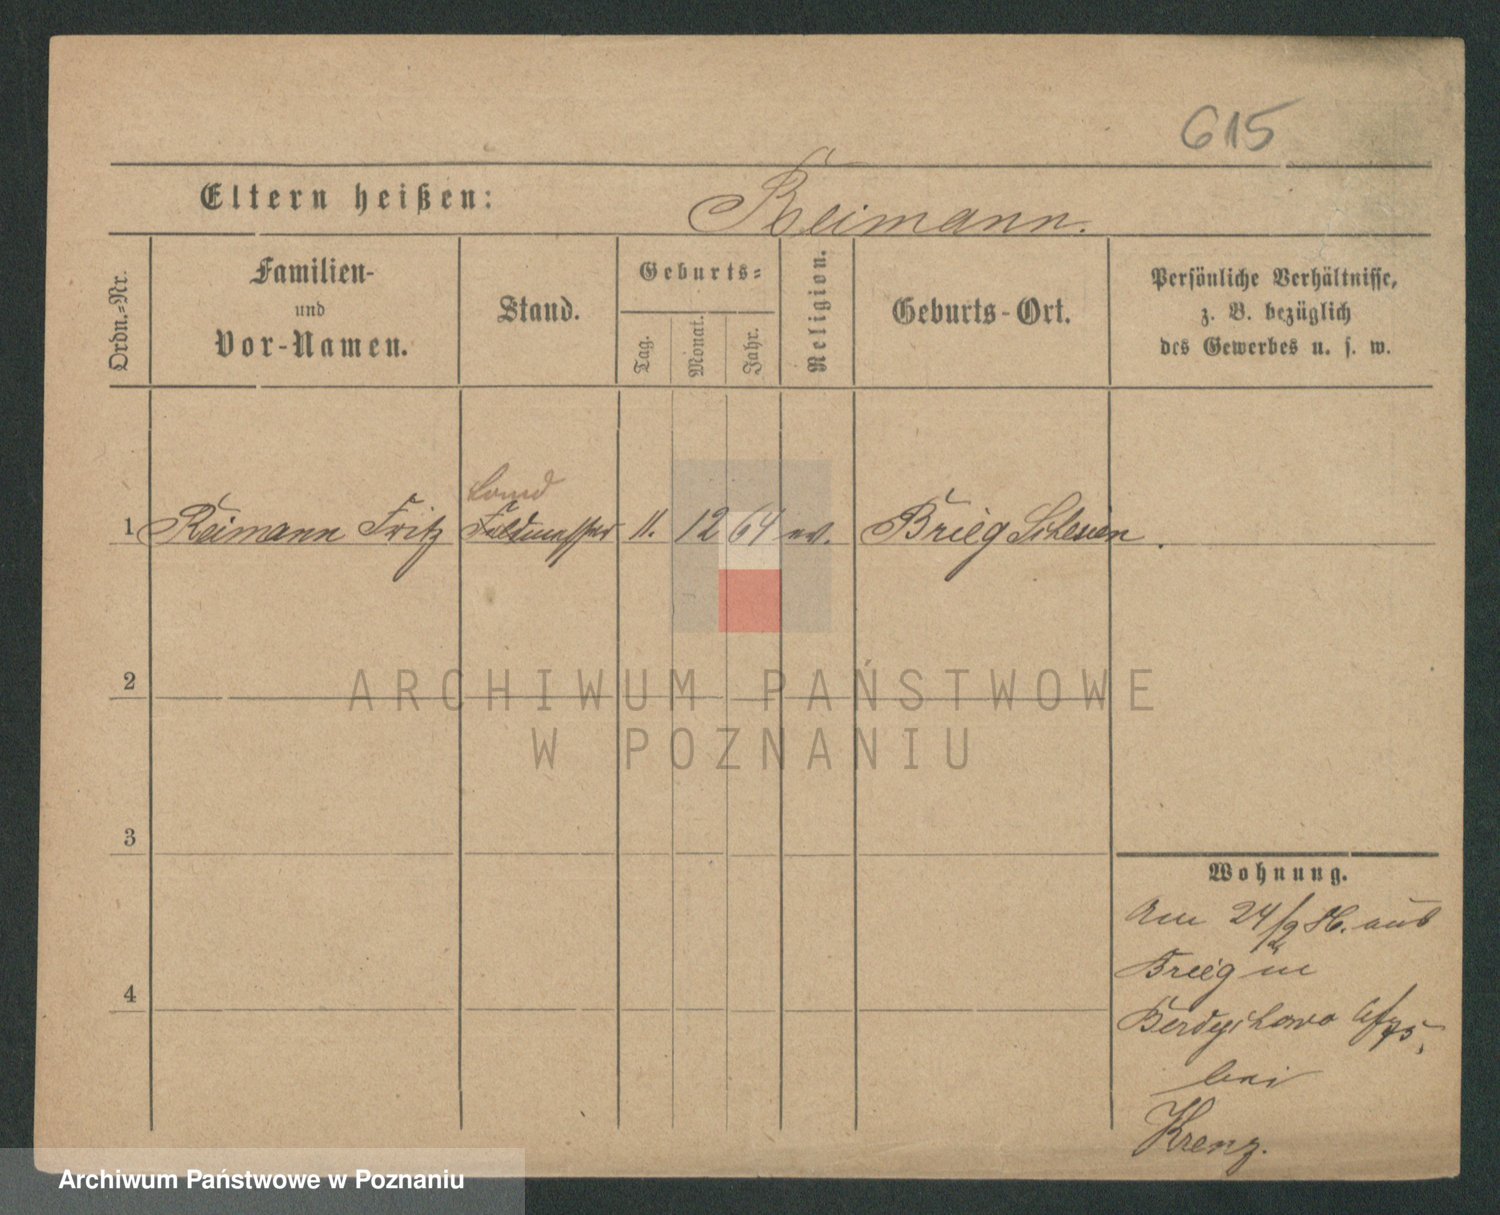 615
Eltern heißen: Reimann.
Ordn.-Nr.
Familien-
und
Vor-Namen.
Stand.
Geburts-
Tag.
Monat.
Jahr.
Religion.
Geburts-Ort.
Persönliche Verhältnisse,
z. B. bezüglich
des Gewerbes u. s. w.
Land
1 Reimann Fritz Feldmesser 11. 12 64 ev. Brieg Schlesien.
2
ARCHIWUM PAŃSTWOWE
W POZNANIU
3
4
Wohnung.
Am 24/9 86. aus
Brieg in
Berdychowo
bei
Krenz.
Archiwum Państwowe w Poznaniu